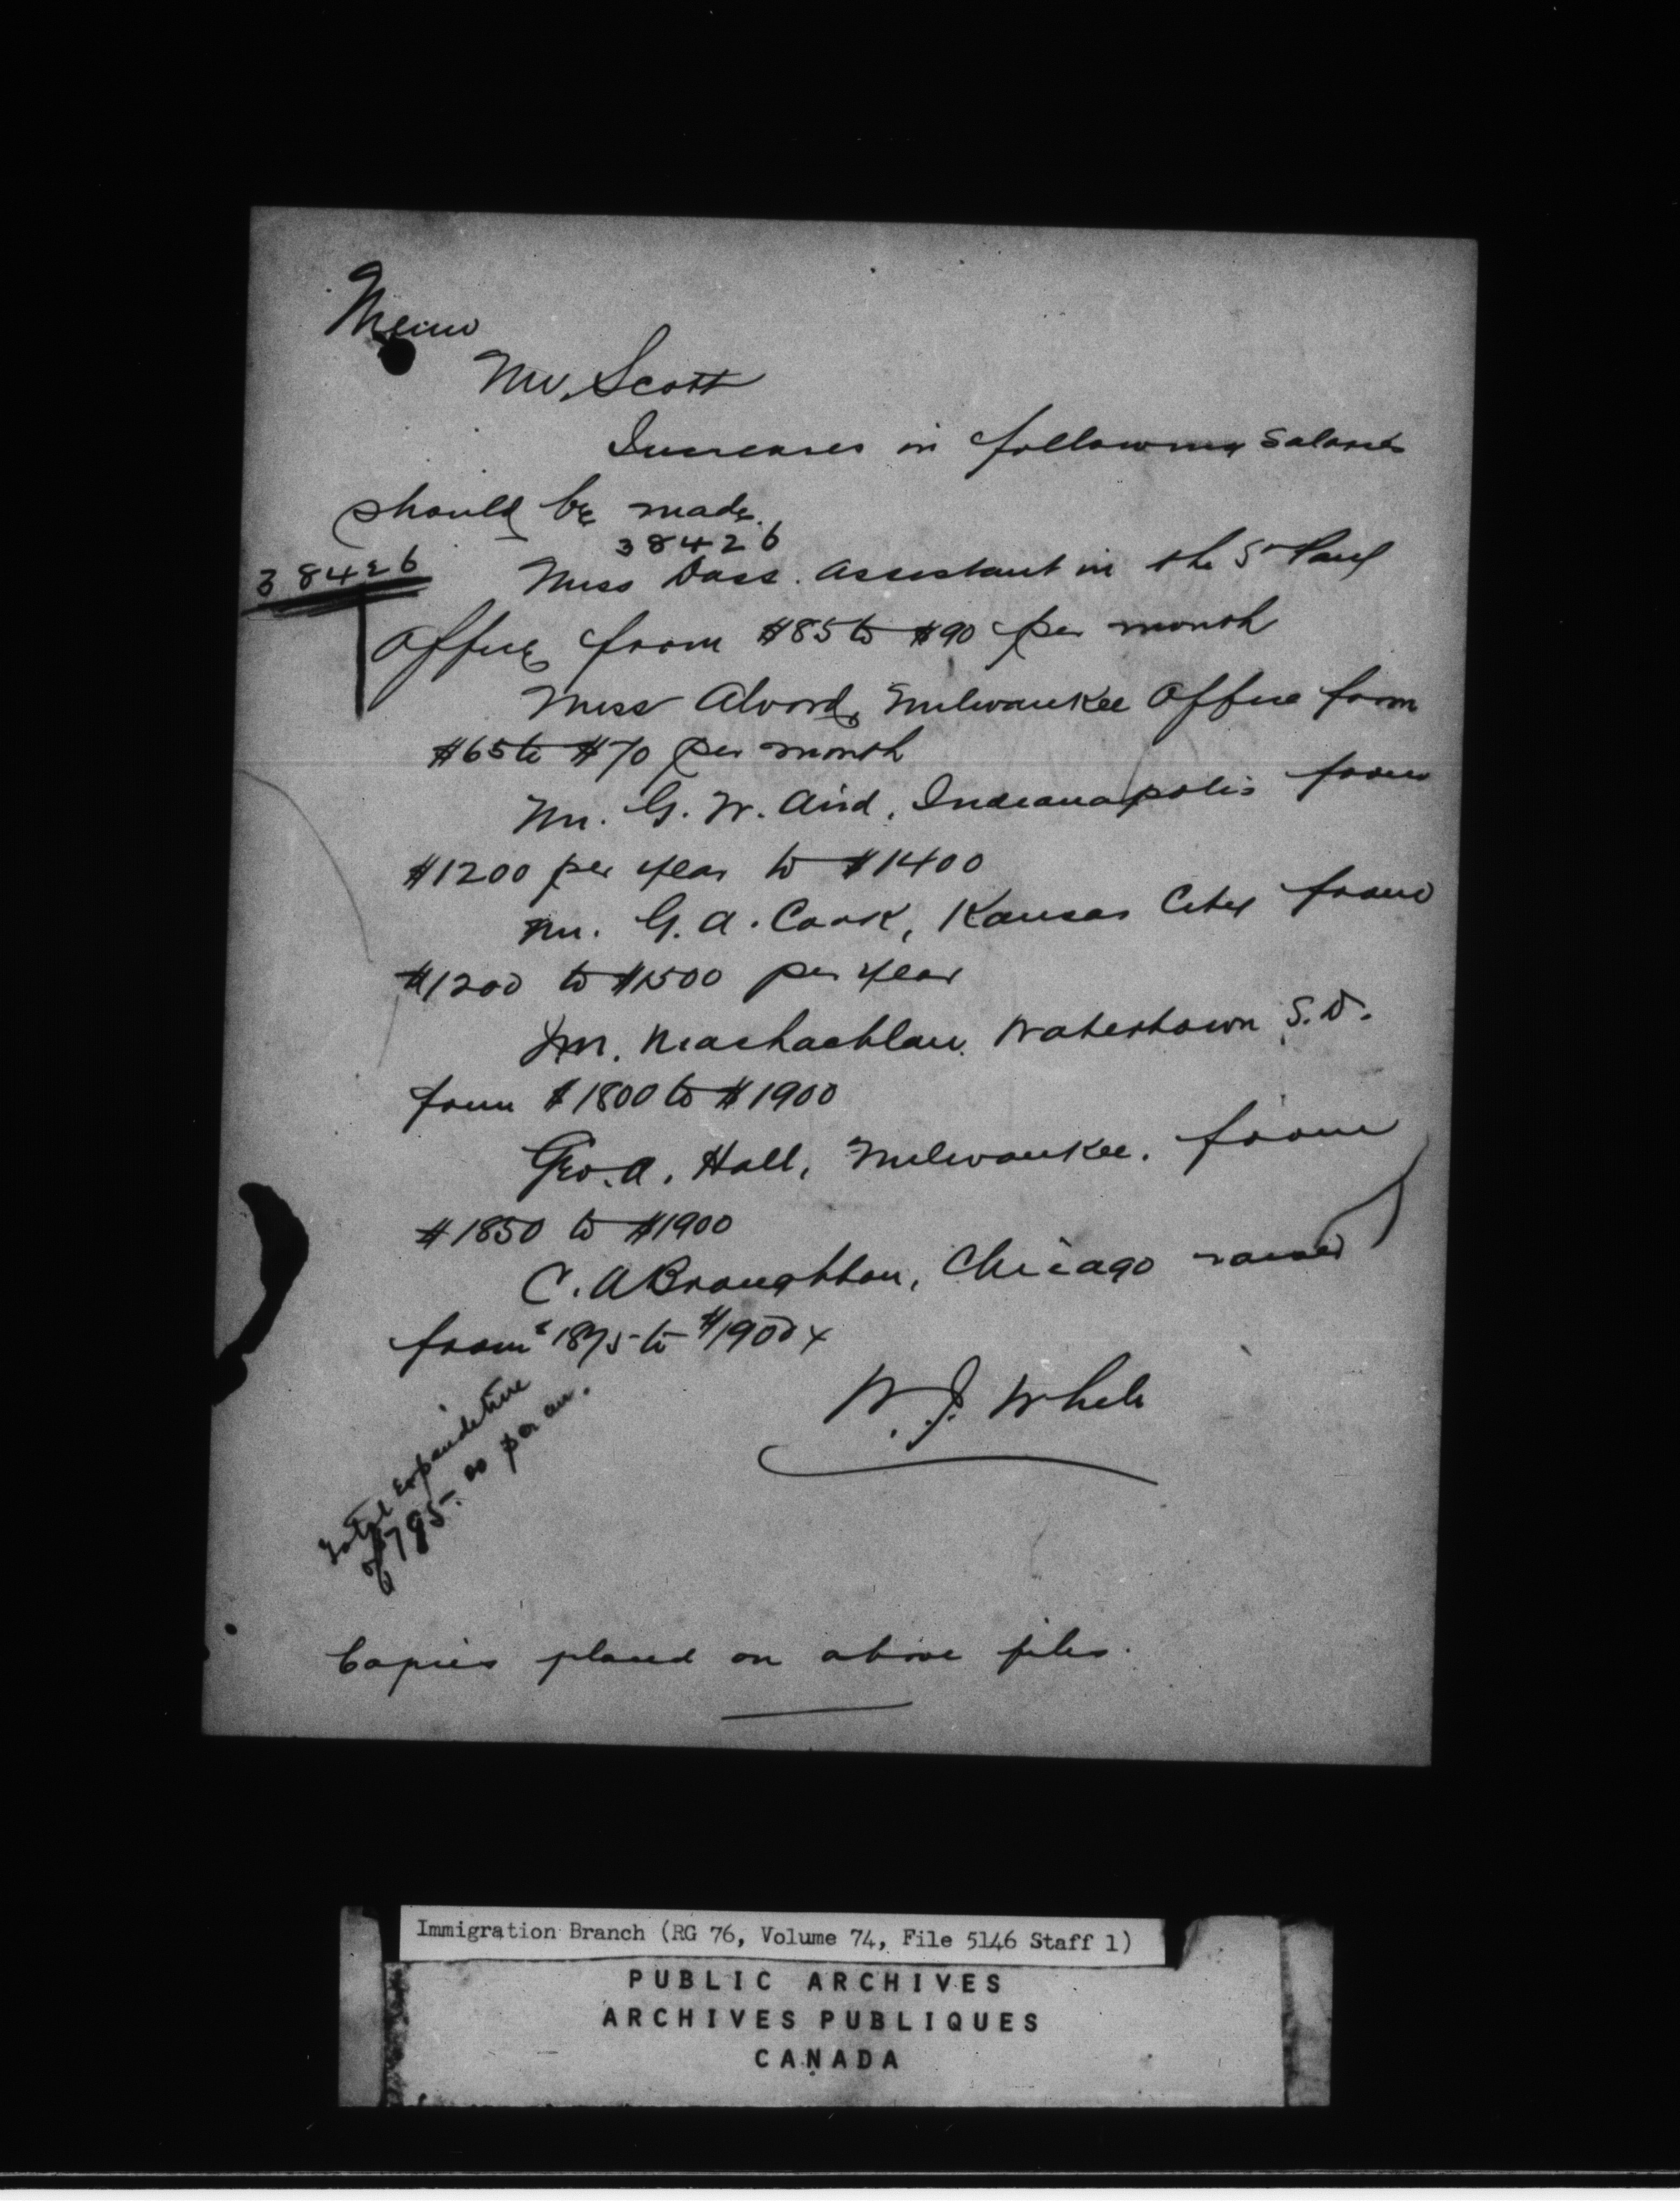 Memo
Mr. Scott
Increases in following salaries
should be made.
38426
38426
Miss Dass. Assistant in the St Paul
Office from $85 to $90 per month
Miss Alvord, Milwaukee Office from
$65 to $70 per month
Mr. G. W. Aird, Indianapolis from
$1200 per year to $1400
Mr. G. A. Cook, Kansas City from
$1200 to $1500 per year
J.M. MacLachlan. Watertown S.D.
from $1800 to $1900
Geo. A. Hall, Milwaukee. from
$1850 to $1900
C. A Broughton, Chicago raised
from $1875 to $1900 x
W. J. White
Total expenditure
of 795.00 per an.
Copies placed on above files.
Immigration Branch (RG 76, Volume 74, File 5146 Staff 1)
PUBLIC ARCHIVES
ARCHIVES PUBLIQUES
CANADA